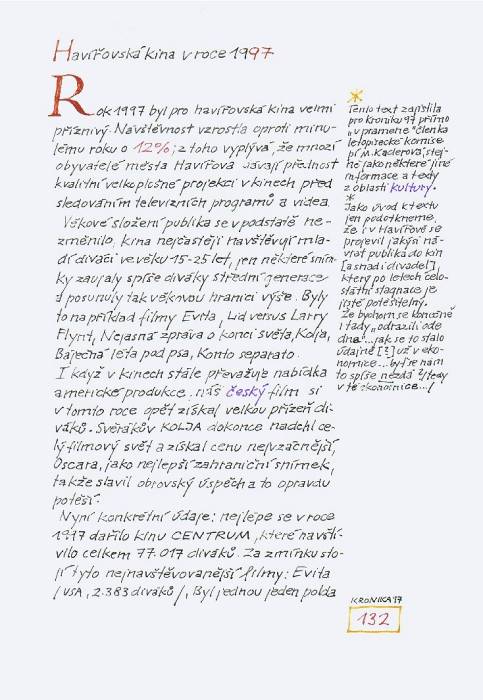 Havířovská kina v roce 1997
Rok 1997 byl pro havířovská kina velmi
příznivý. Návštěvnost vzrostla oproti minu-
lému roku o 12%; z toho vyplývá, že mnozí
obyvatelé města Havířova dávají přednost
kvalitní velkoplošné projekci v kinech před
sledováním televizních programů a videa.
Věkové složení publika se v podstatě ne-
změnilo, kina nejčastěji navštěvují mla-
dí diváci ve věku 15-25 let, jen některé sním-
ky zaujaly spíše diváky střední generace
a posunuly tak věkovou hranici výše. Byly
to například filmy Evita, Lid versus Larry
Flynt, Nejasná zpráva o konci světa, Kolja,
Báječná léta pod psa, Konto separato.
I když v kinech stále převažuje nabídka
americké produkce, náš český film si
v tomto roce opět získal velkou přízeň di-
váků. Svěrákův KOLJA dokonce nadchl ce-
lý filmový svět a získal cenu nejvzácnější,
Oscara, jako nejlepší zahraniční snímek,
takže slavil obrovský úspěch a to opravdu
potěší.
Nyní konkrétní údaje: nejlépe se v roce
1997 dařilo kinu CENTRUM, které navští-
vilo celkem 77.017 diváků. Za zmínku sto-
jí tyto nejnavštěvovanější filmy: Evita
/USA, 2.383 diváků/, Byl jednou jeden polda
*
Tento text zajistila
pro kroniku 97 přímo
"u pramene" členka
letopisecké komise
pí M. Kaderová, stej-
ně jako některé jiné
informace a to tedy
z oblasti kultury.
*
Jako úvod k textu
jen podotkneme,
že i v Havířově se
projevil jakýsi ná-
vrat publika do kin
[a snad i divadel],
který po letech celo-
státní stagnace je
jistě potěšitelný.
Že bychom se konečně
i tady "odrazili ode
dna"...jak se to stalo
údajně [?] už v eko-
nomice...byť se nám
to spíše nezdá /tedy
v té ekonomice.../
KRONIKA 97
132